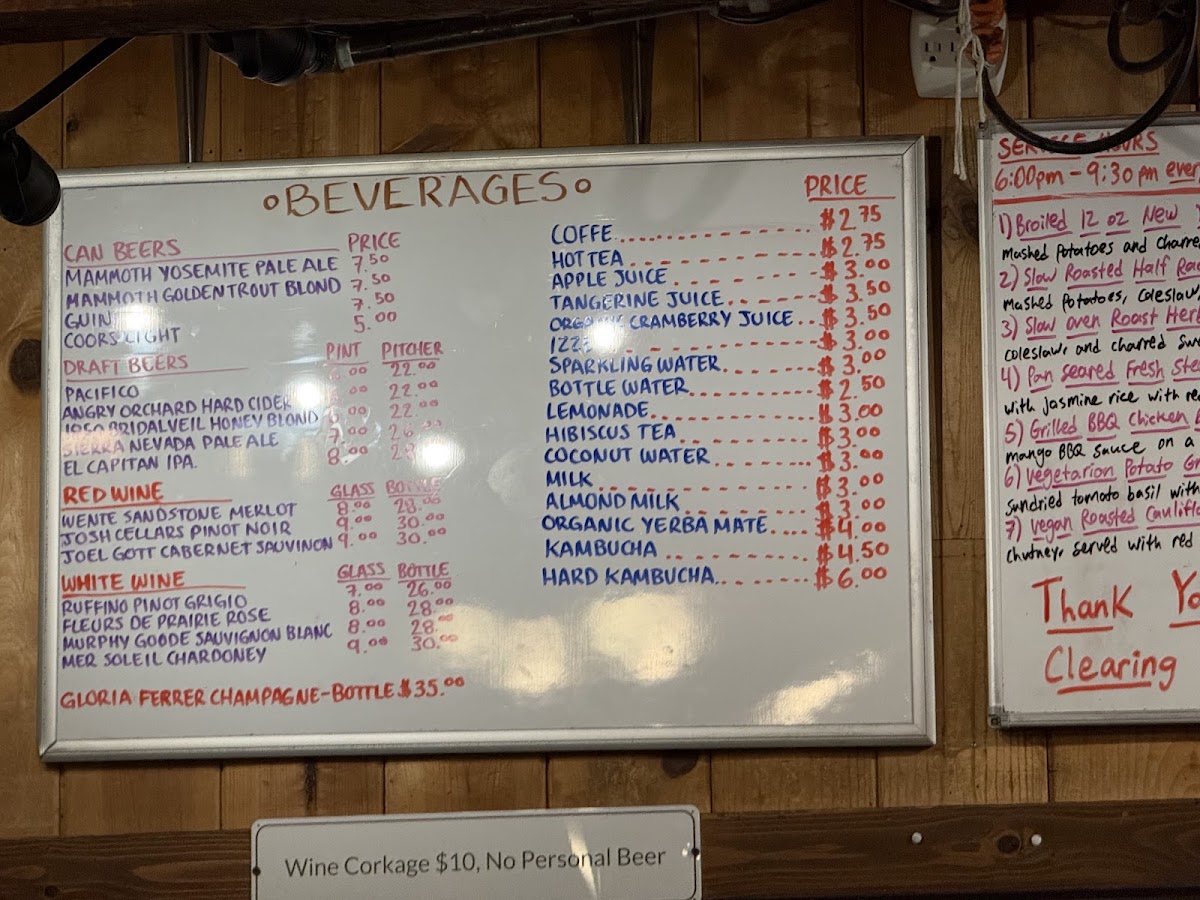 BEVERAGES
CAN BEERS PRICE
MAMMOTH YOSEMITE PALE ALE 7.50
MAMMOTH GOLDEN TROUT BLOND 7.50
7.50
COORS LIGHT 5.00
DRAFT BEERS PINT PITCHER
PACIFICO 22.00
ANGRY ORCHARD HARD CIDER 22.00
1850 BRIDALVEIL HONEY BLOND 22.00
SIERRA NEVADA PALE ALE 7.00
EL CAPITAN IPA. 8.00
RED WINE GLASS BOTTLE
WENTE SANDSTONE MERLOT 8.00 28.00
JOSH CELLARS PINOT NOIR 9.00 30.00
JOEL GOTT CABERNET SAUVINON 9.00 30.00
WHITE WINE GLASS BOTTLE
RUFFINO PINOT GRIGIO 7.00 26.00
FLEURS DE PRAIRIE ROSE 8.00 28.00
MURPHY GOODE SAUVIGNON BLANC 8.00 28.00
MER SOLEIL CHARDONEY 9.00 30.00
GLORIA FERRER CHAMPAGNE-BOTTLE $35.00
PRICE
COFFE $2.75
HOT TEA $2.75
APPLE JUICE $3.00
TANGERINE JUICE $3.50
ORGANIC CRAMBERRY JUICE $3.50
$3.00
SPARKLING WATER $3.00
BOTTLE WATER $2.50
LEMONADE $3.00
HIBISCUS TEA $3.00
COCONUT WATER $3.00
MILK $3.00
ALMOND MILK $3.00
ORGANIC YERBA MATE $4.00
KAMBUCHA $4.50
HARD KAMBUCHA $6.00
SERVICE HOURS
6:00pm - 9:30 pm
1) Broiled 12 oz New
Mashed Potatoes and
2) Slow Roasted Half
Mashed Potatoes, coleslaw,
3) Slow oven Roast
coleslaw, and charred
4) Pan seared Fresh
with jasmine rice with
5) Grilled BBQ Chicken
mango BBQ sauce on a
6) Vegetarian Potato
Sundried tomato basil with
7) Vegan Roasted
chutney, served with red
Thank
Clearing
Wine Corkage $10, No Personal Beer